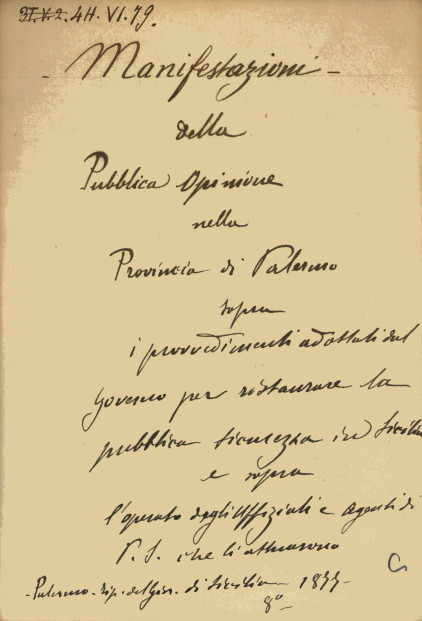 37.V.2. 4H. VI. 79.
- Manifestazioni -
della
Pubblica Opinione
nella
Provincia di Palermo
sopra
i provvedimenti adottati dal
Governo per ristaurare la
pubblica sicurezza in Sicilia
e sopra
l'operato degli Uffiziali e Agenti di
P. S. che li attuarono
- Palermo - Tip. del Gior. di Sicilia - 1877 -
8º